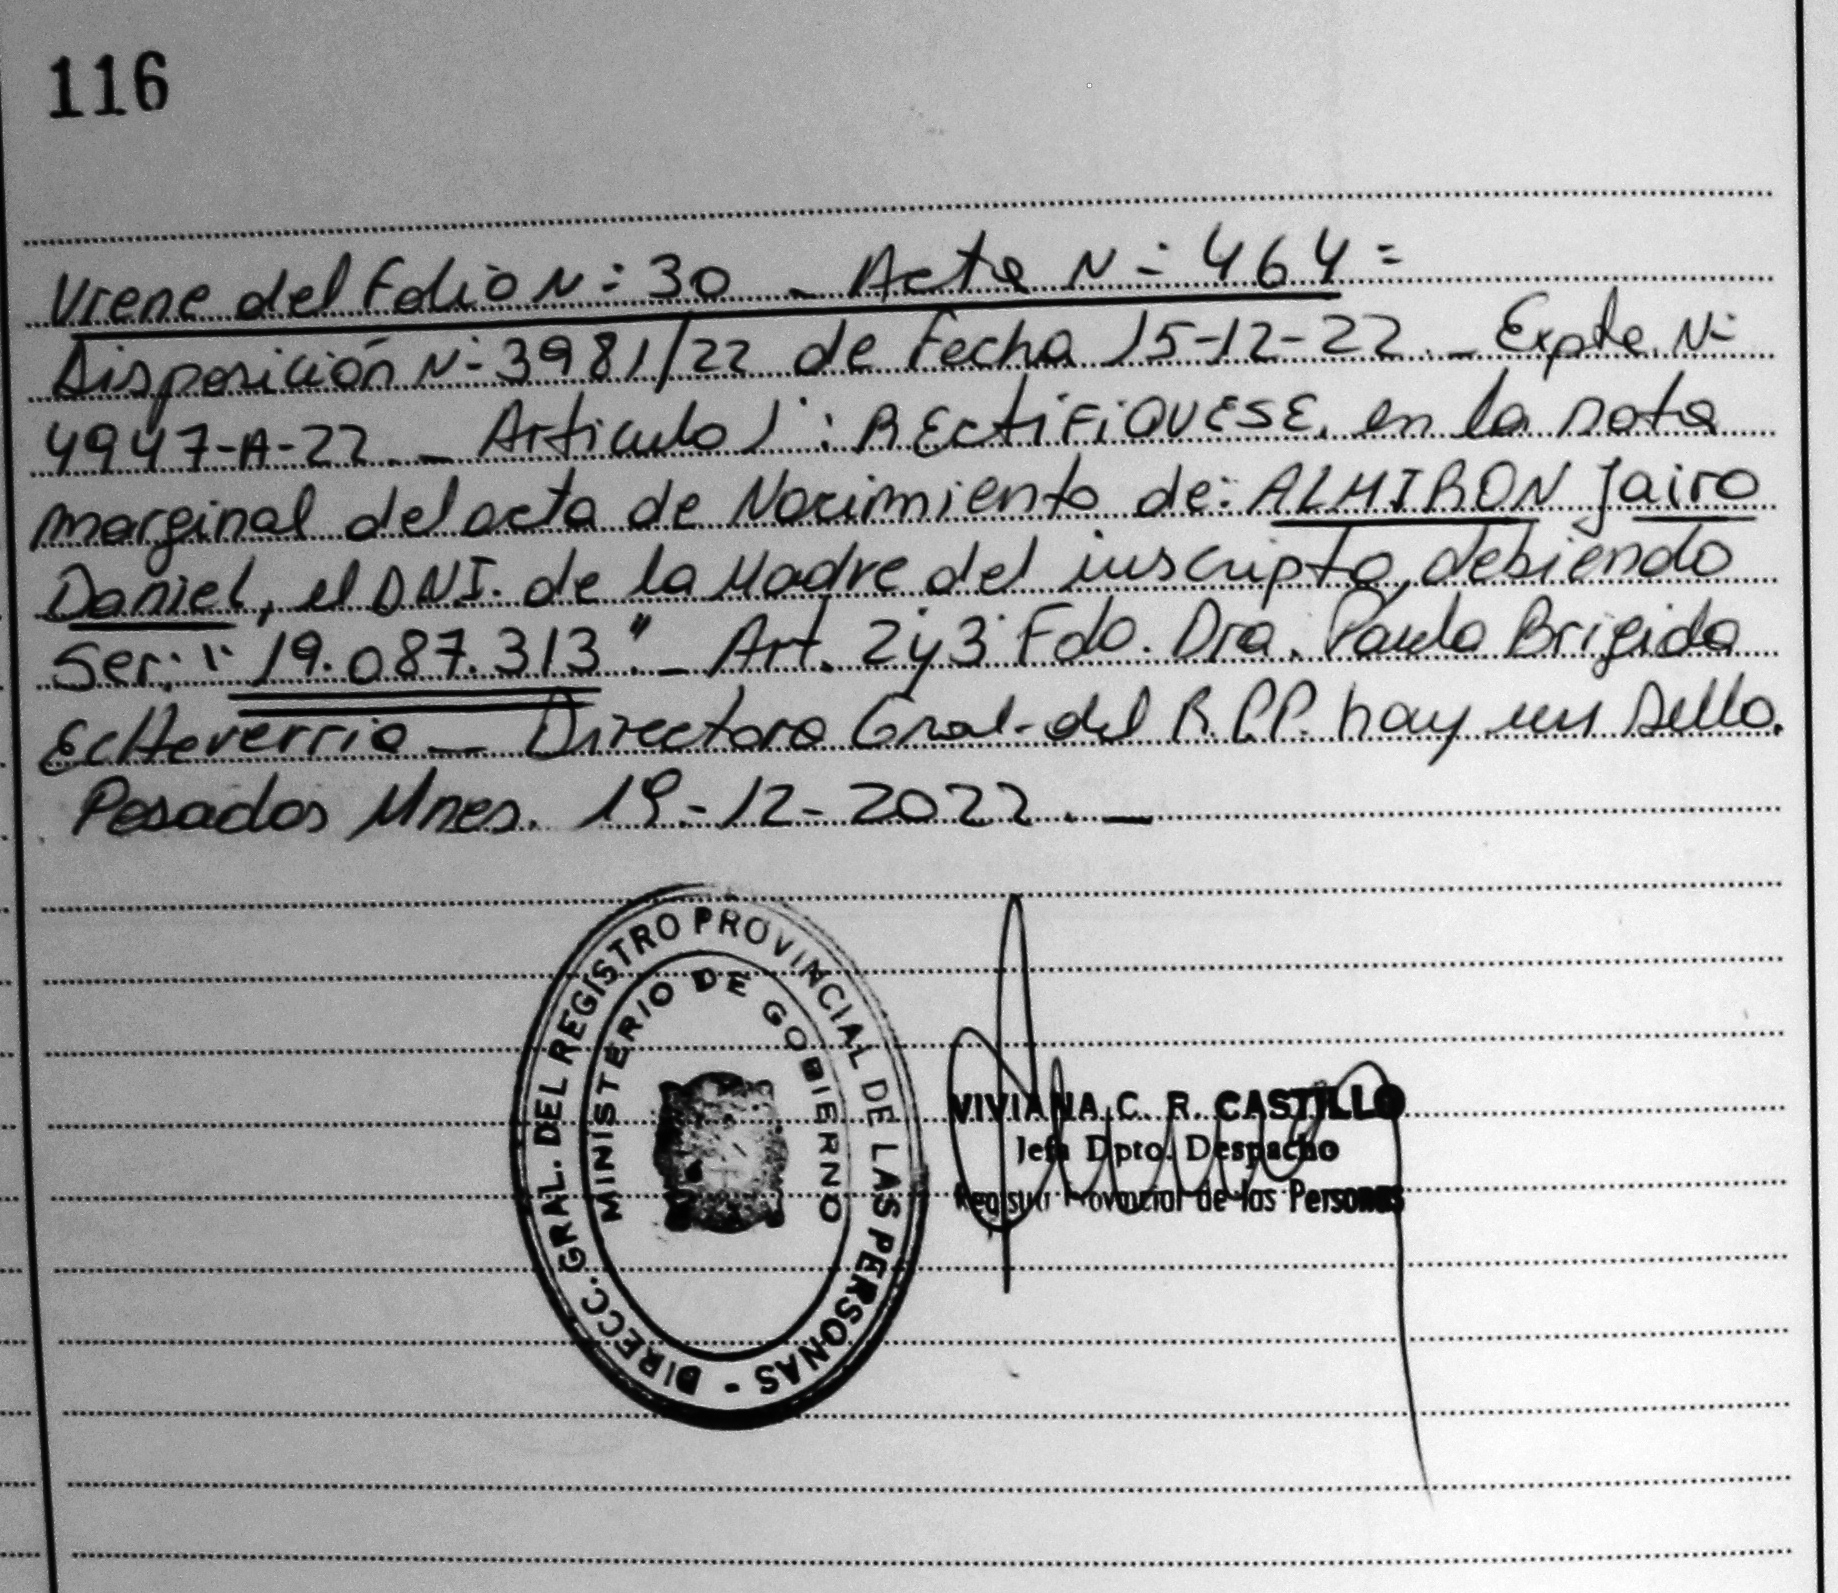 116
Viene del Folio N: 30 - Acta N: 464 =
Disposición N: 3981/22 de Fecha 15-12-22. _ Expte. N:
4947-A-22. _ Articulo 1°: RECTIFIQUESE, en la nota
marginal del acta de Nacimiento de: ALMIRON Jairo
Daniel, el DNI. de la Madre del inscripto, debiendo
Ser: "19.087.313". _ Art. 2 y 3 Fdo. Dra. Paula Brigida
Echeverria _ Directora Gral. del R.P.P. hay un sello.
Posadas Mnes. 19-12-2022. _
DIRECC. GRAL. DEL REGISTRO PROVINCIAL DE LAS PERSONAS -
MINISTERIO DE GOBIERNO
VIVIANA C. R. CASTILLO
Jefa Dpto. Despacho
Registro Provincial de las Personas